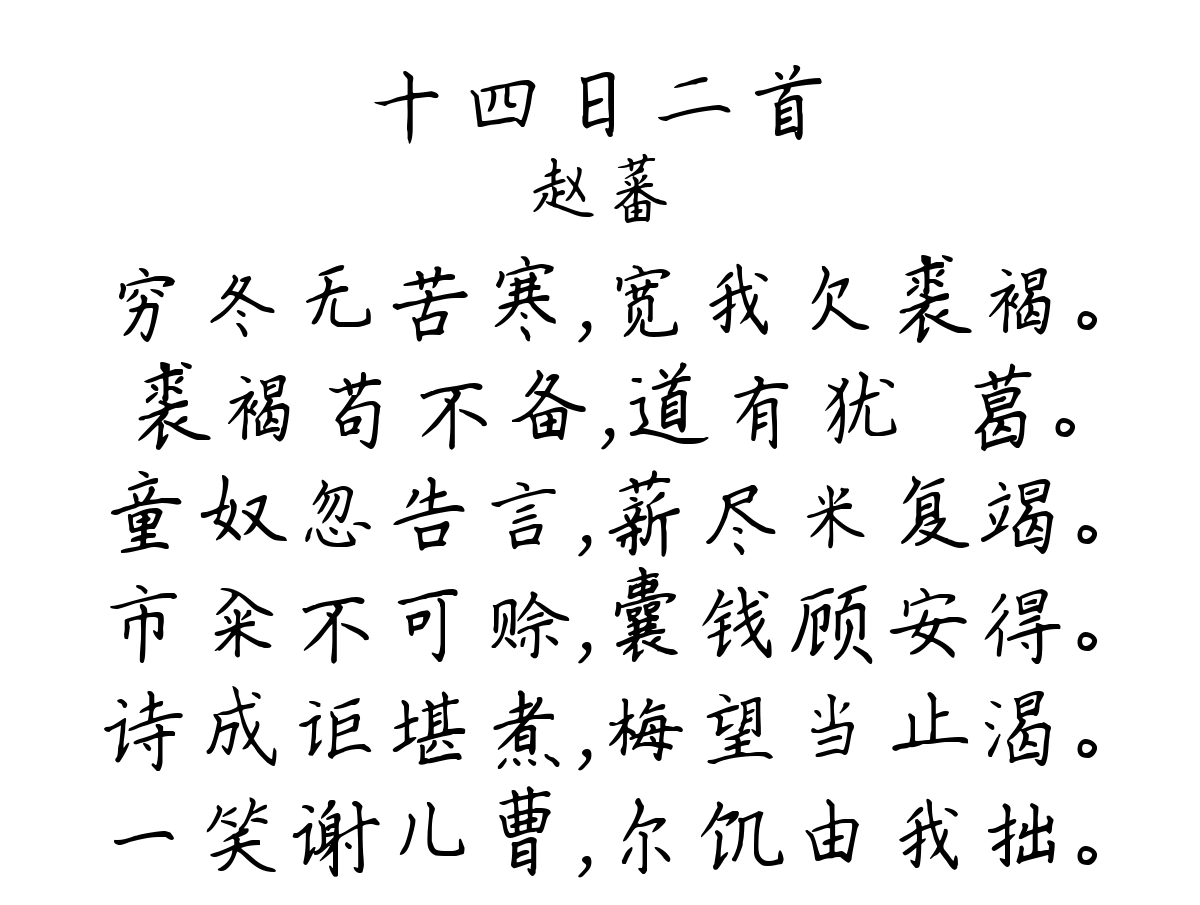 十四日二首
赵蕃
穷冬无苦寒,宽我欠裘褐。
裘褐苟不备,道有犹 葛。
童奴忽告言,薪尽米复竭。
市籴不可赊,囊钱顾安得。
诗成讵堪煮,梅望当止渴。
一笑谢儿曹,尔饥由我拙。